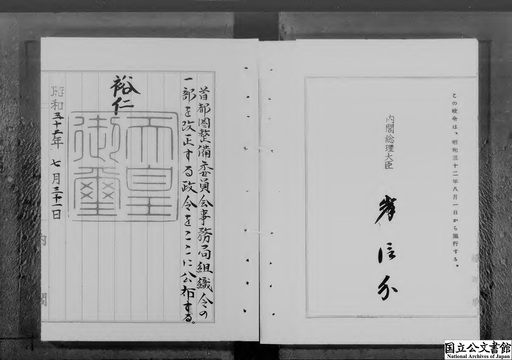 この政令は、昭和三十二年八月一日から施行する。
内閣総理大臣
岸信介
首都圏整備委員会事務局組織令の
一部を改正する政令をここに公布する。
裕仁
天皇
御璽
昭和三十二年七月三十一日
内閣
国立公文書館
National Archives of Japan